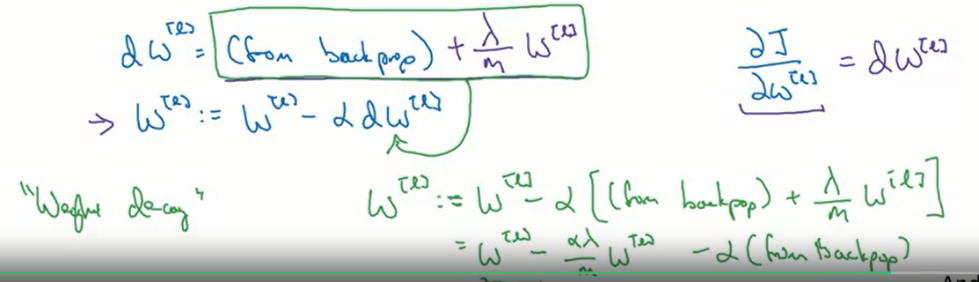 dW^[l] = (from backprop) + λ/m W^[l]
∂J/∂W^[l] = dW^[l]
→ W^[l] := W^[l] - α dW^[l]
"Weight decay"
W^[l] := W^[l] - α [(from backprop) + λ/m W^[l]]
= W^[l] - αλ/m W^[l] - α (from backprop)